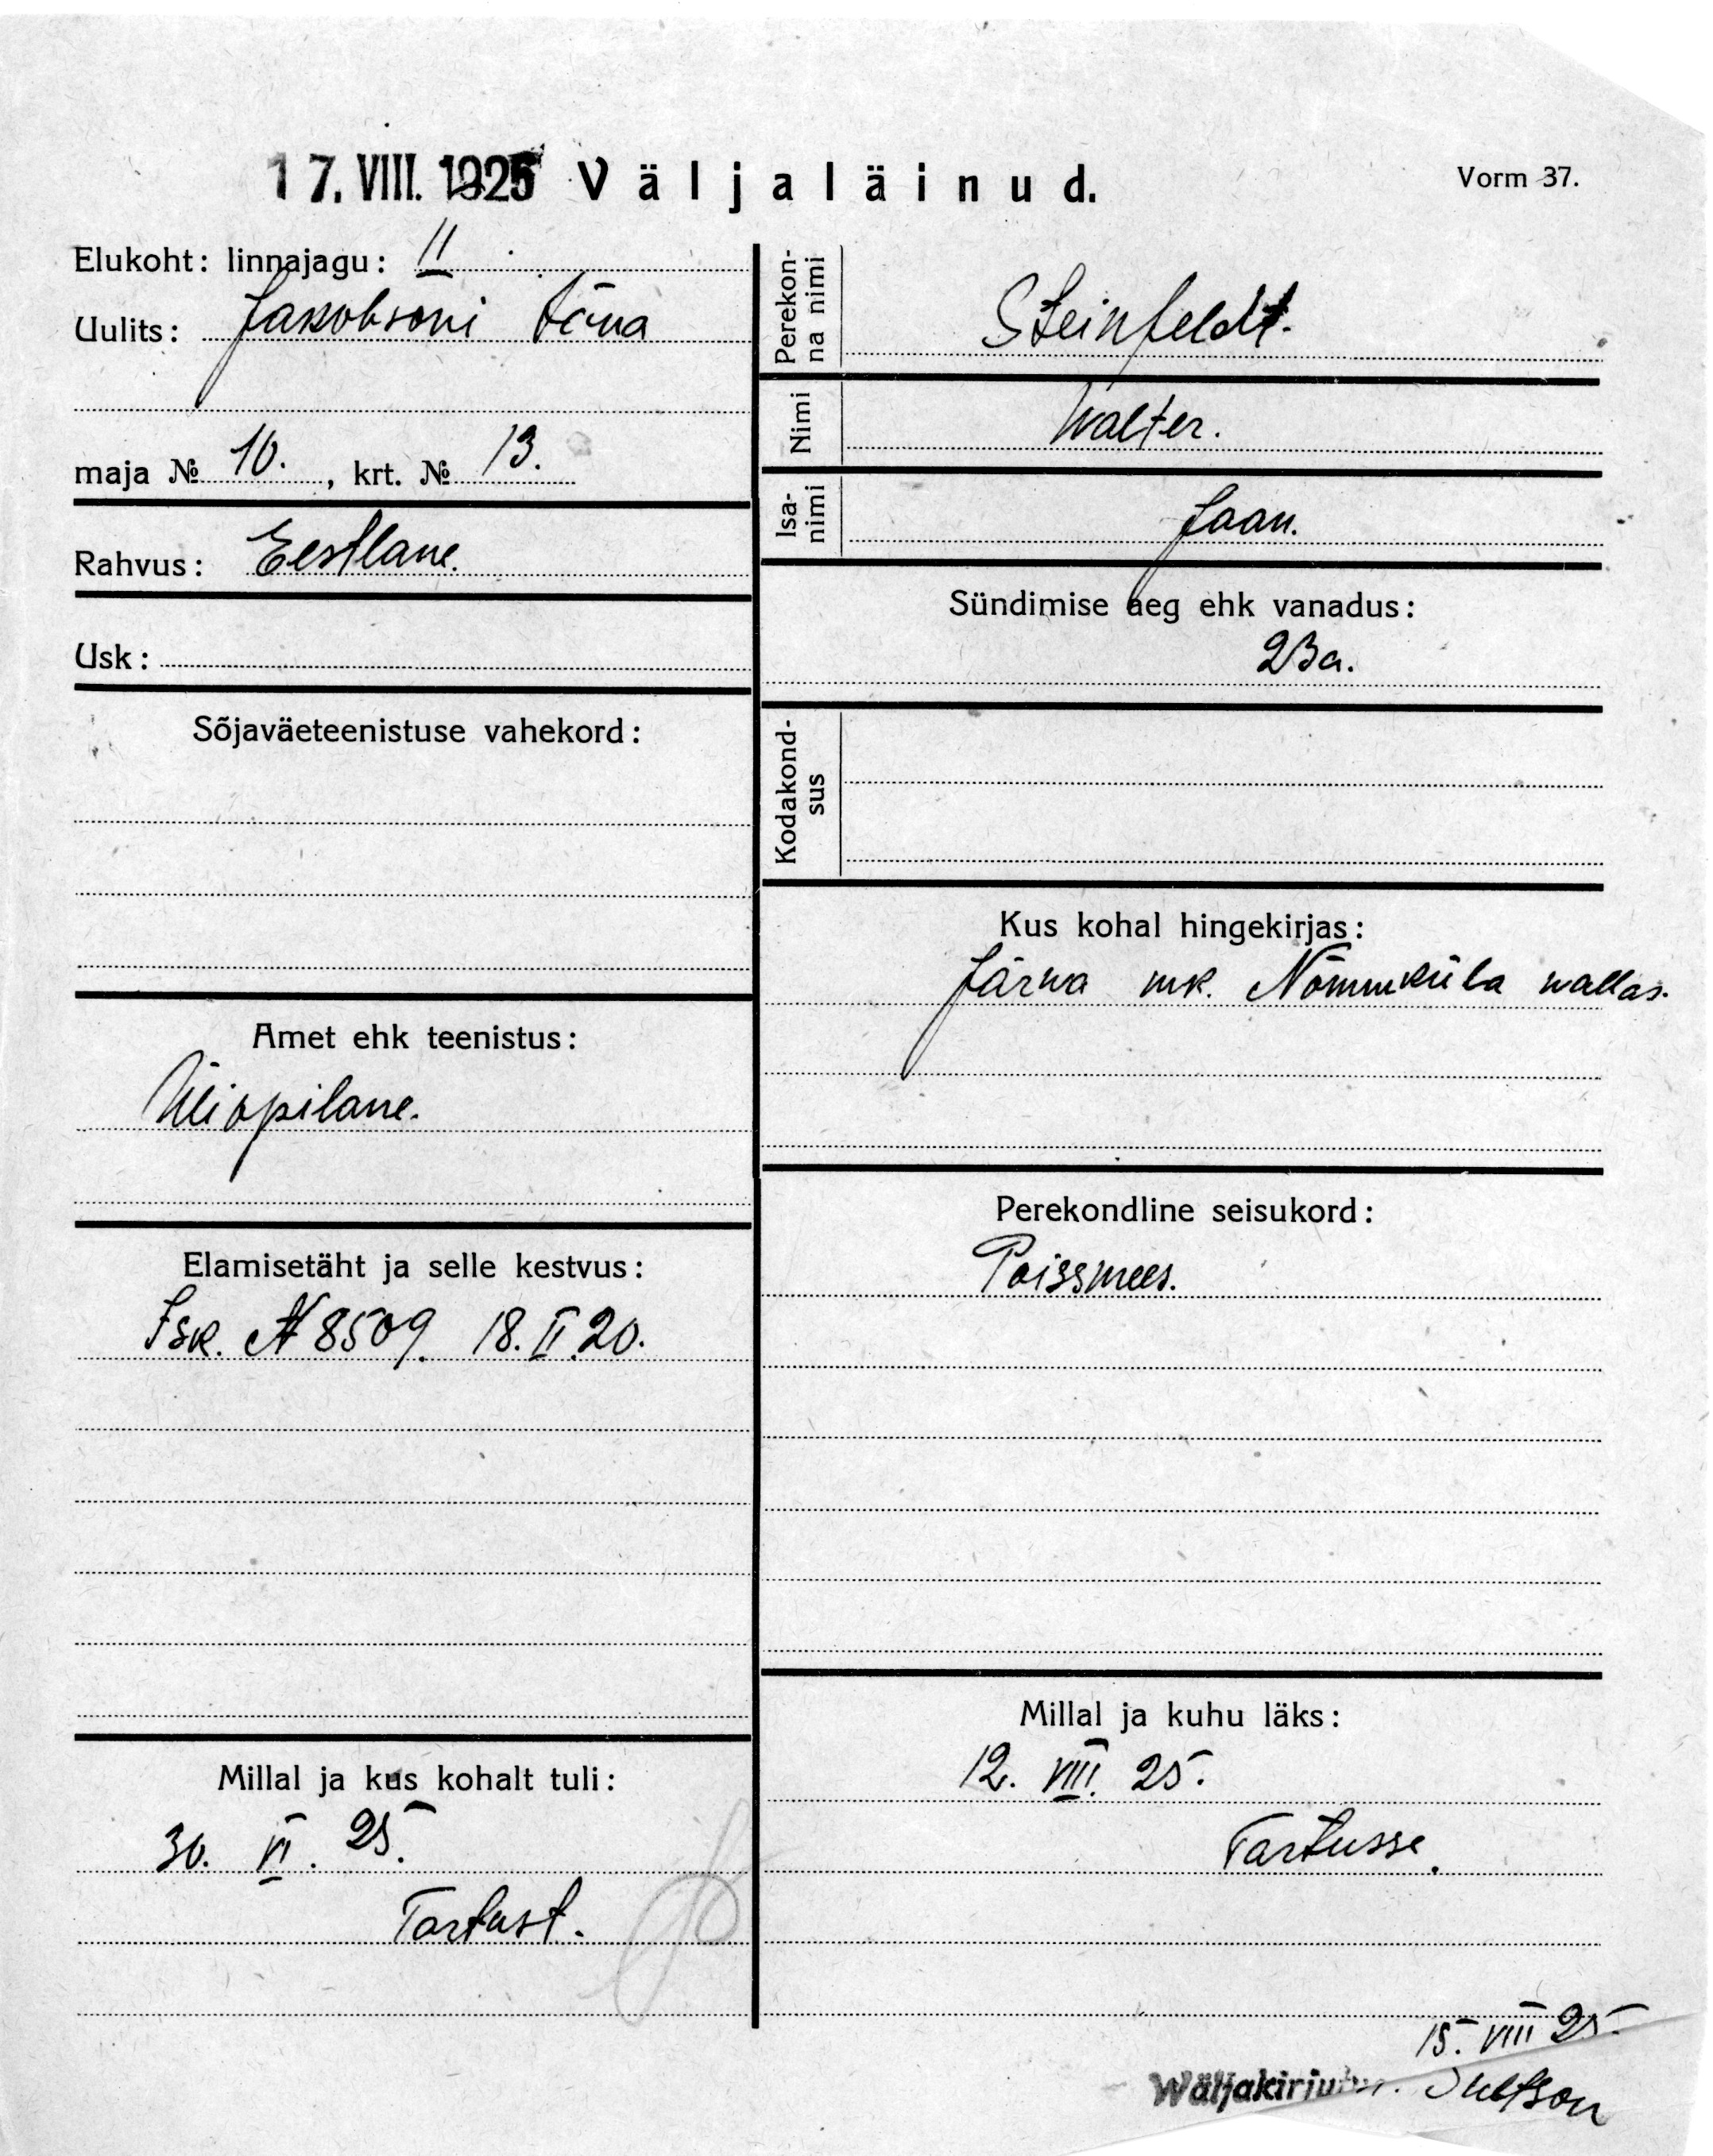 17. VIII. 1925 Väljaläinud.
Vorm 37.
Elukoht: linnajagu: II
Uulits: Jakobsoni tän
maja № 10. , krt. № 13.
Rahvus: Eestlane.
Usk:
Sõjaväeteenistuse vahekord:
Amet ehk teenistus:
Üliõpilane.
Elamisetäht ja selle kestvus:
Isk. № 8509. 18.II.20.
Millal ja kus kohalt tuli:
30. VI. 25.
Tartust.
Perekon-
na nimi
Steinfeldt.
Nimi
Walter.
Isa-
nimi
Jaan.
Sündimise aeg ehk vanadus:
23a.
Kodakond-
sus
Kus kohal hingekirjas:
Järwa mk. Nõmmküla wallas.
Perekondline seisukord:
Poissmees.
Millal ja kuhu läks:
12. VIII. 25.
Tartusse.
15. VIII 25.